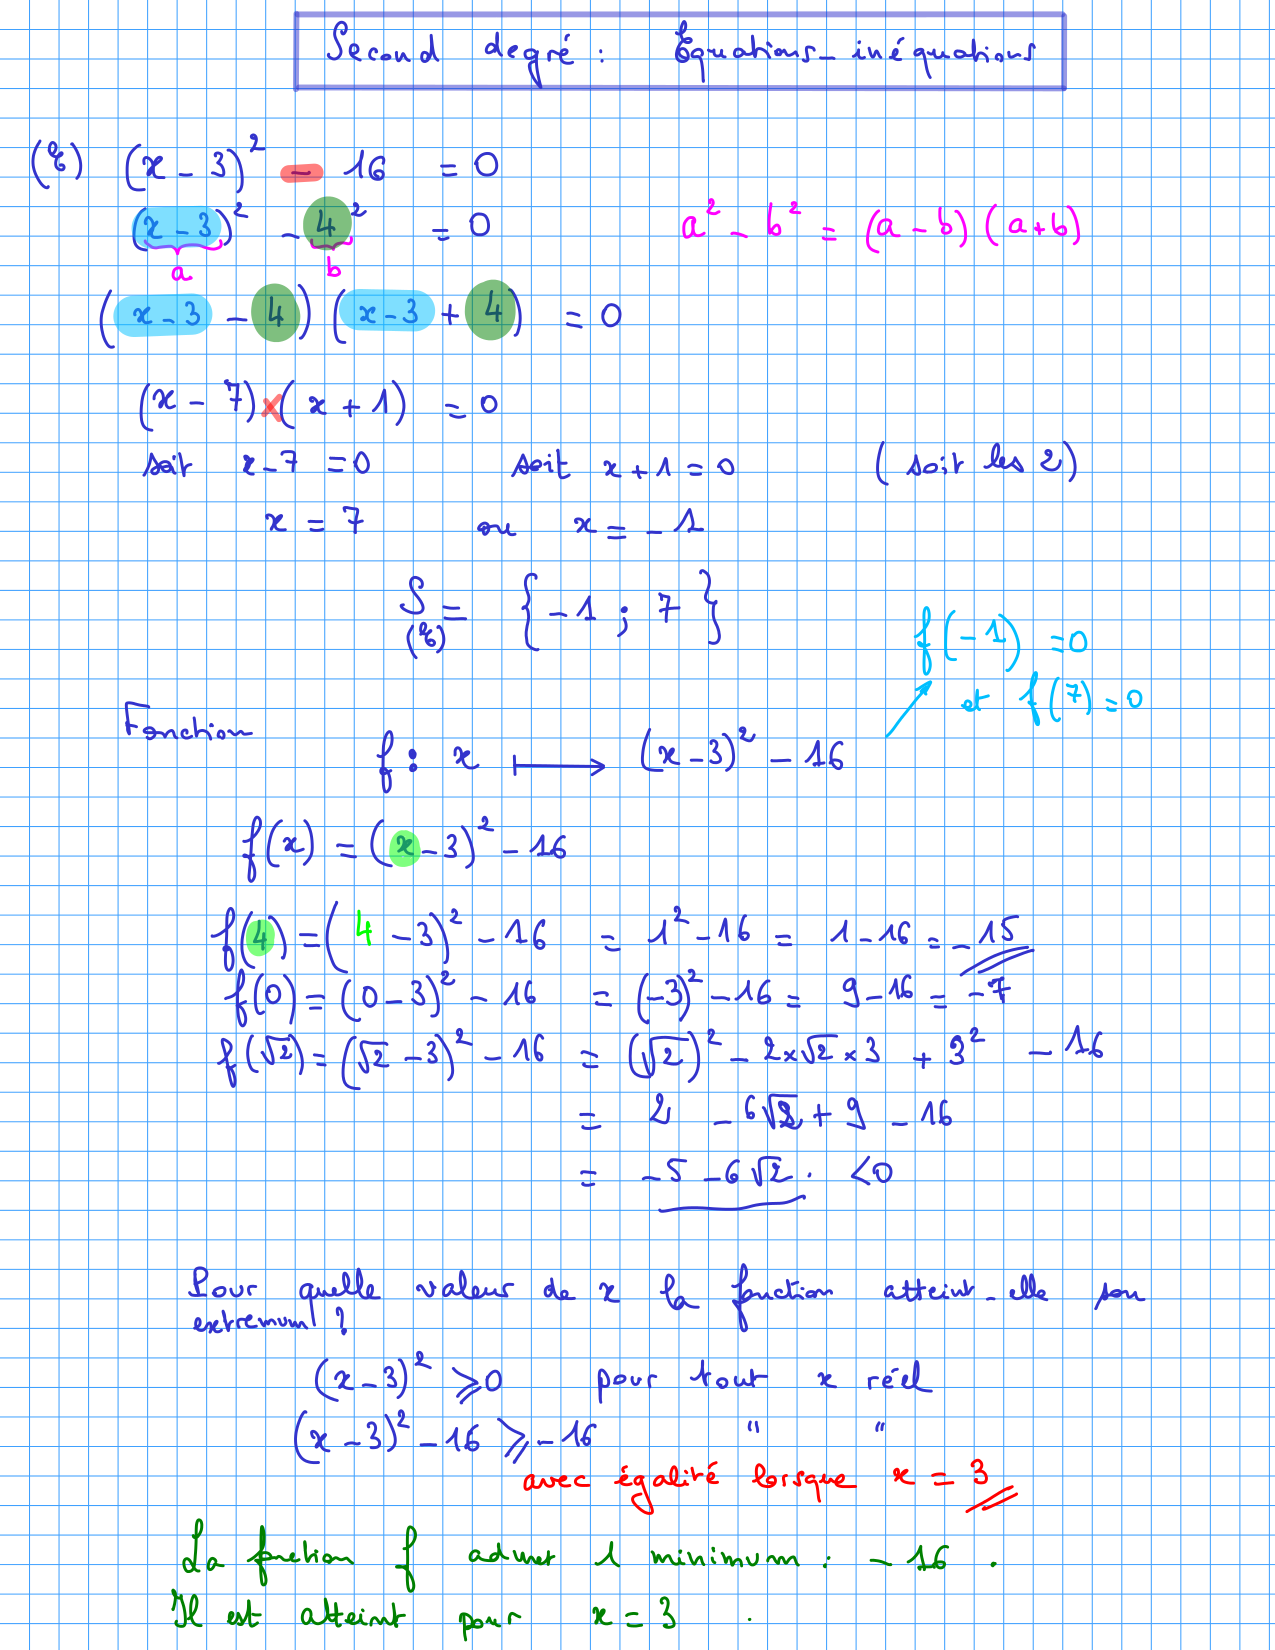 Second degré : Equations - inéquations
(E) (x - 3)² - 16 = 0
(x - 3)² - 4² = 0 a² - b² = (a - b) (a + b)
a b
(x - 3 - 4) (x - 3 + 4) = 0
(x - 7) × (x + 1) = 0
soit x - 7 = 0 soit x + 1 = 0 (soit les 2)
x = 7 ou x = - 1
S(E) = { - 1 ; 7 }
f(-1) = 0
et f(7) = 0
Fonction
f : x ⟼ (x - 3)² - 16
f(x) = (x - 3)² - 16
f(4) = (4 - 3)² - 16 = 1² - 16 = 1 - 16 = - 15
f(0) = (0 - 3)² - 16 = (-3)² - 16 = 9 - 16 = - 7
f(√2) = (√2 - 3)² - 16 = (√2)² - 2×√2×3 + 3² - 16
= 2 - 6√2 + 9 - 16
= - 5 - 6√2 . < 0
Pour quelle valeur de x la fonction atteint-elle son
extremum ?
(x - 3)² ⩾ 0 pour tout x réel
(x - 3)² - 16 ⩾ - 16 " "
avec égalité lorsque x = 3
La fonction f admet 1 minimum : - 16 .
Il est atteint pour x = 3 .